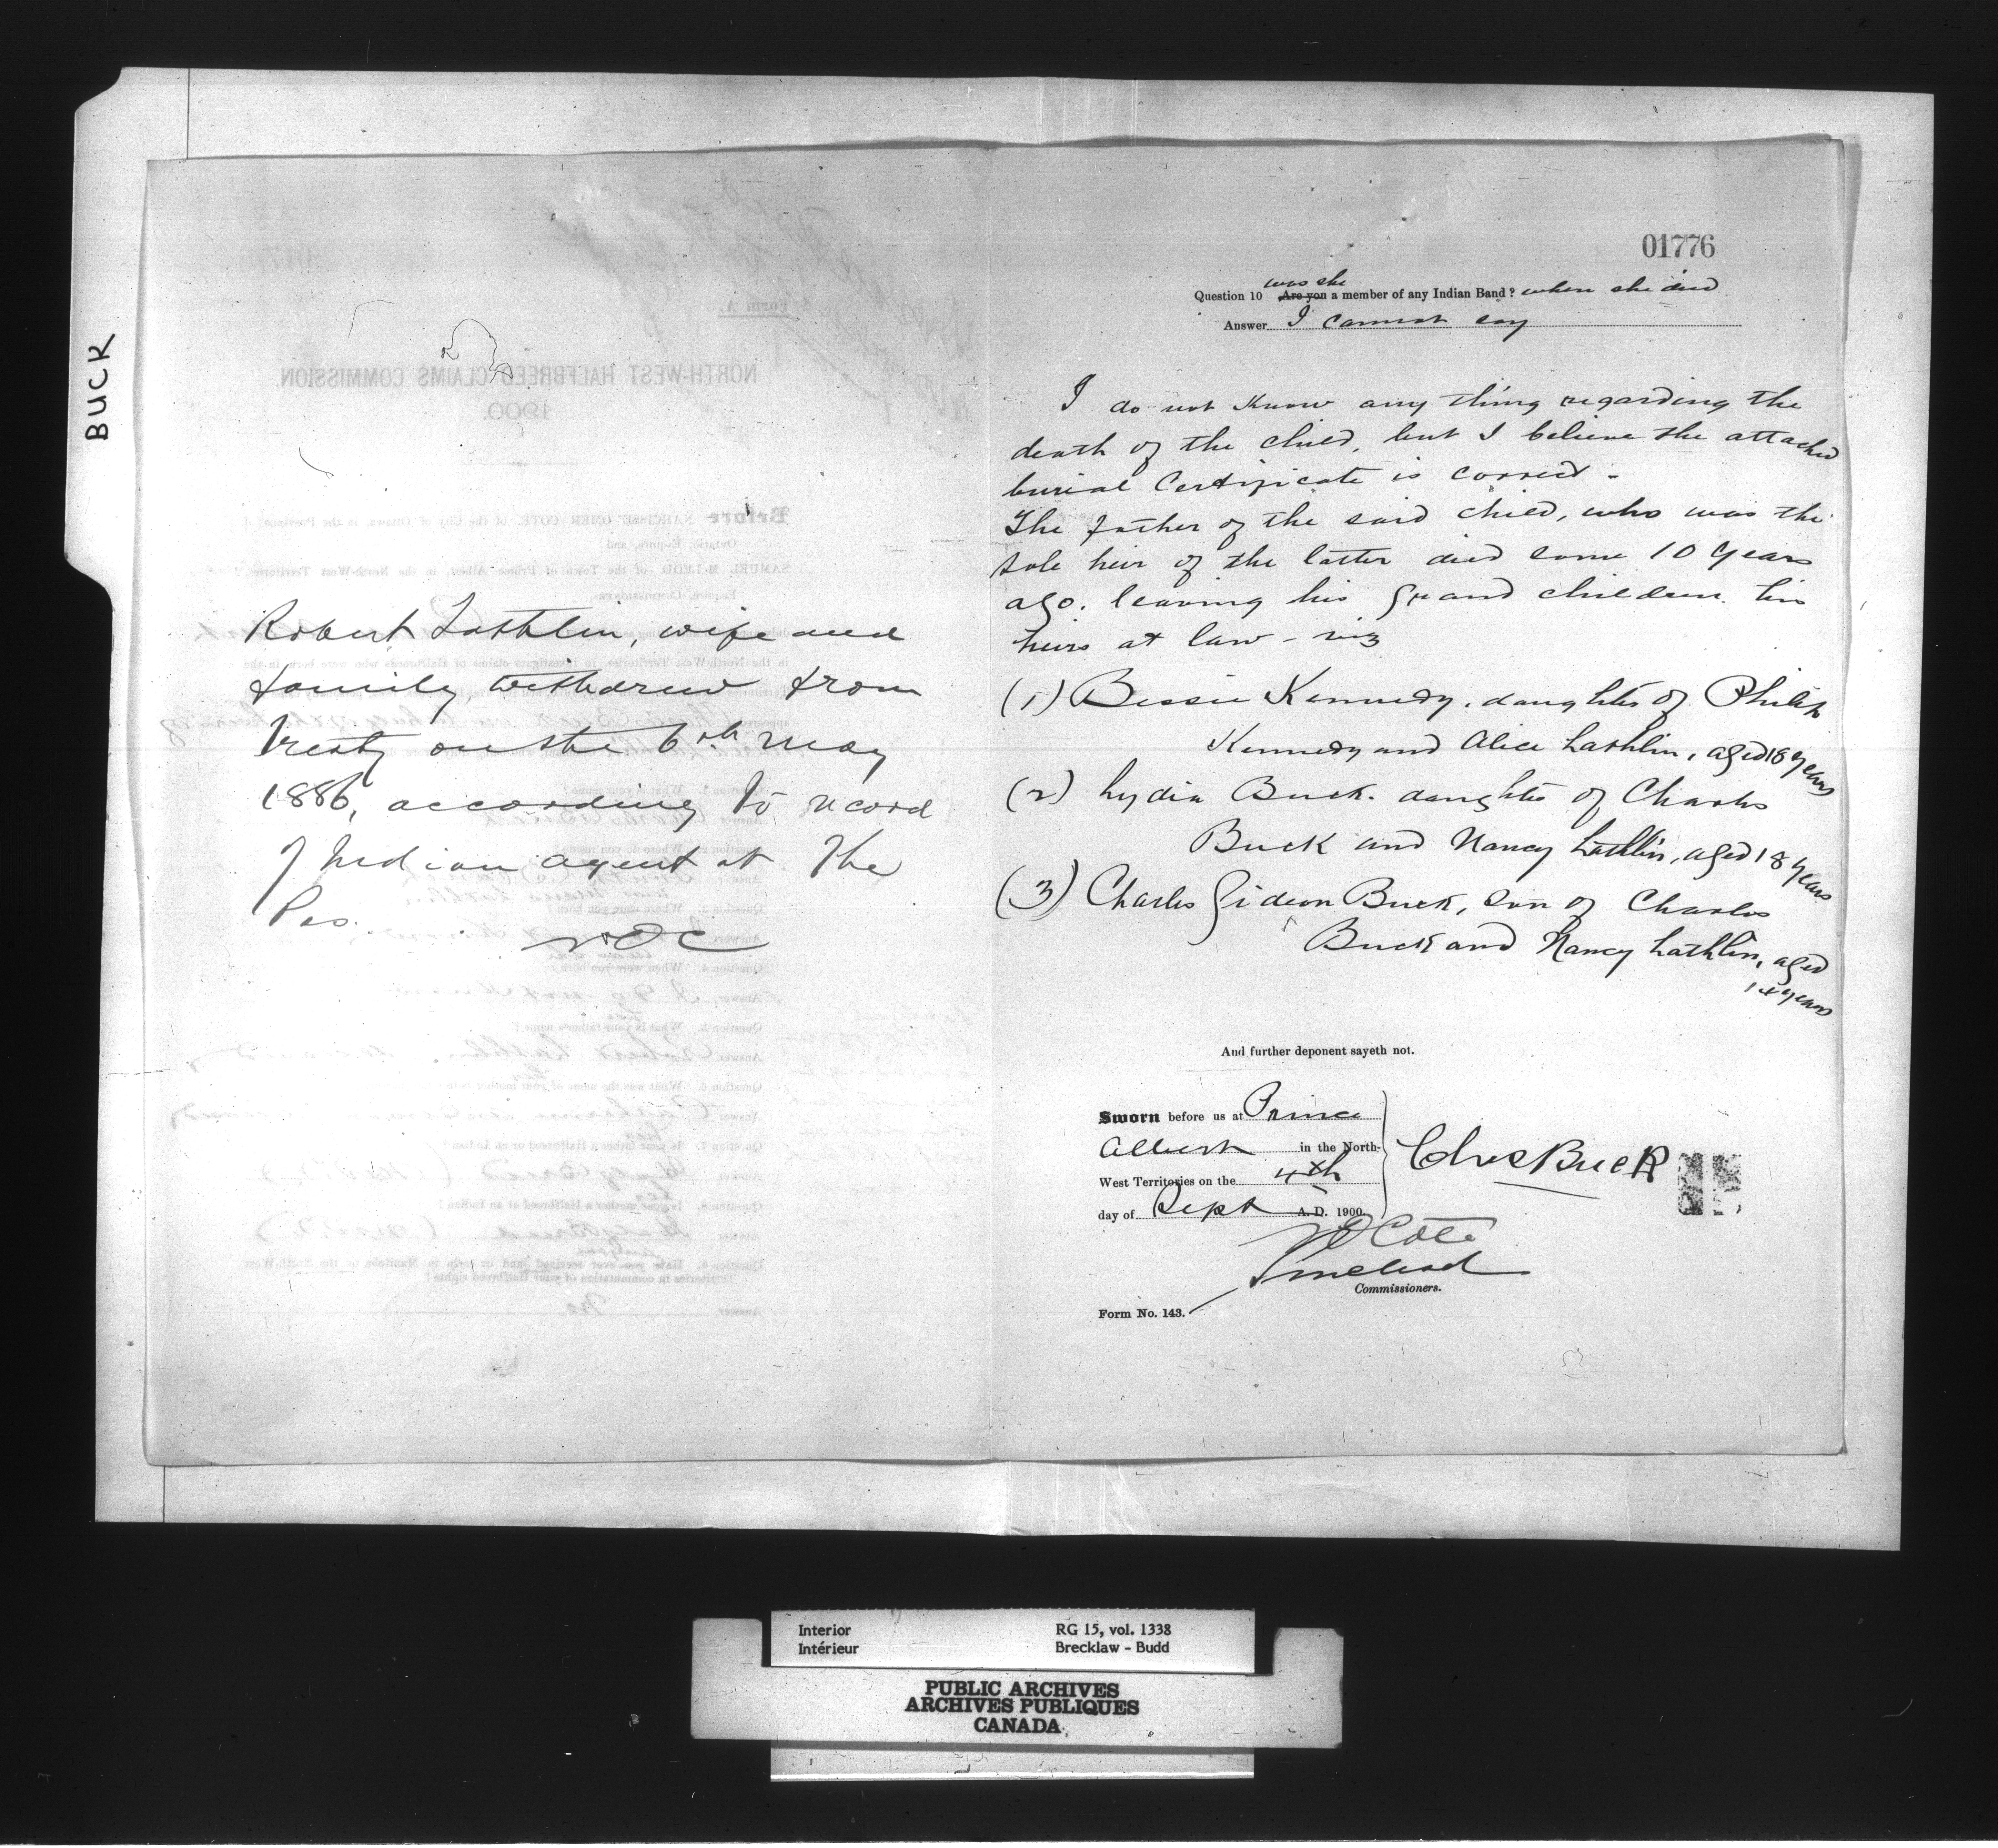 BUCK
Robert Lathlin, wife and
family, withdrew from
Treaty on the 6th May
1886, according to record
of Indian agent at The
Pas.
NOC
01776
was she
Question 10 Are you a member of any Indian Band? when she died
Answer I cannot say
I do not know any thing regarding the
death of the child, but I believe the attached
burial Certificate is correct -
The father of the said child, who was the
sole heir of the latter died some 10 years
ago. leaving his grand children his
heirs at law - viz
(1) Bessie Kennedy, daughter of Philip
Kennedy and Alice Lathlin, aged 18 years
(2) Lydia Buck. daughter of Charles
Buck and Nancy Lathlin, aged 18 years
(3) Charles Gideon Buck, son of Charles
Buck and Nancy Lathlin, aged
14 years
And further deponent sayeth not.
Sworn before us at Prince
Albert in the North-
West Territories on the 4th
day of Sept A.D. 1900.
Chas Buck
NO Coté
S McLeod
Commissioners.
Form No. 143.
Interior RG 15, vol. 1338
Intérieur Brecklaw - Budd
PUBLIC ARCHIVES
ARCHIVES PUBLIQUES
CANADA